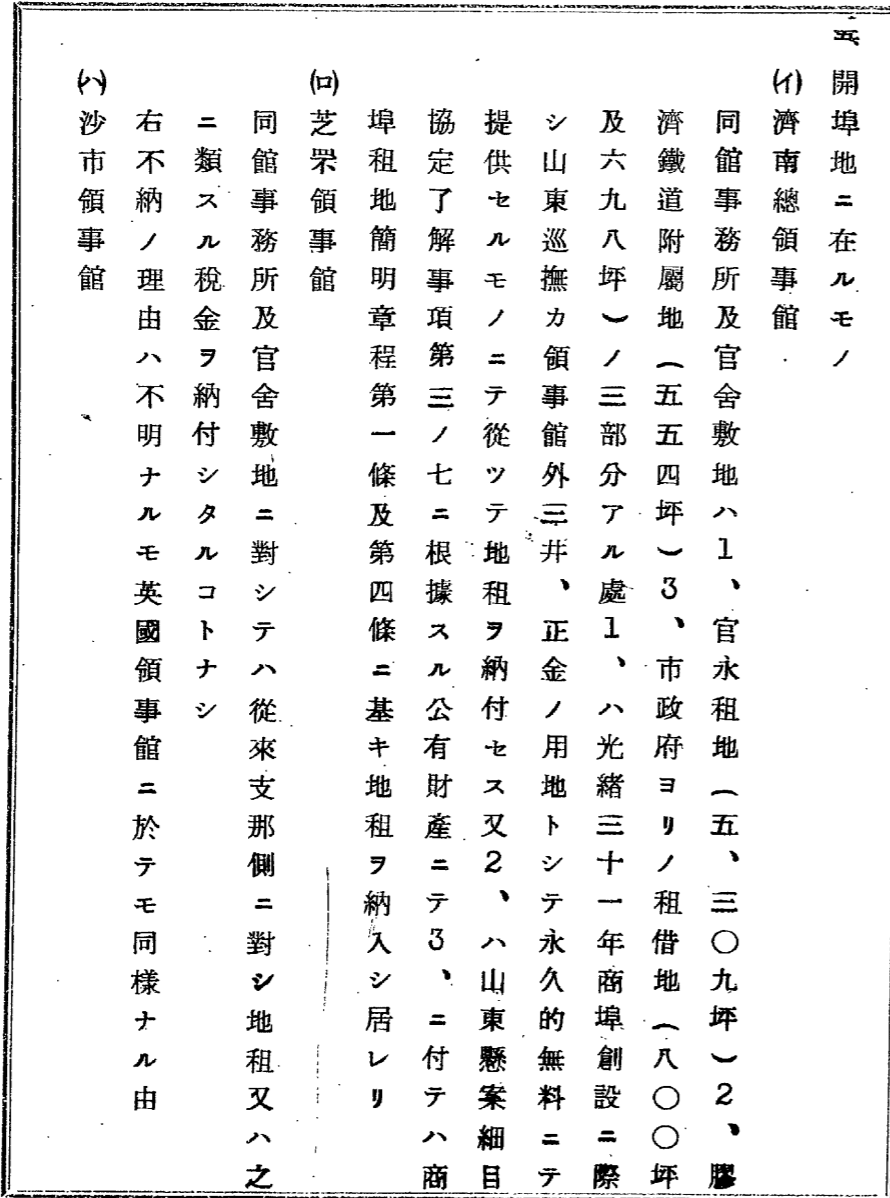 五、開埠地ニ在ルモノ
(イ)濟南總領事館
同館事務所及官舍敷地ハ1、官永租地(五、三〇九坪)2、膠
濟鐵道附屬地(五五四坪)3、市政府ヨリノ租借地(八〇〇坪
及六九八坪)ノ三部分アル處1、ハ光緖三十一年商埠創設ニ際
シ山東巡撫カ領事館外三井、正金ノ用地トシテ永久的無料ニテ
提供セルモノニテ從ツテ地租ヲ納付セス又2、ハ山東懸案細目
協定了解事項第三ノ七ニ根據スル公有財產ニテ3、ニ付テハ商
埠租地簡明章程第一條及第四條ニ基キ地租ヲ納入シ居レリ
(ロ)芝罘領事館
同館事務所及官舍敷地ニ對シテハ從來支那側ニ對シ地租又ハ之
ニ類スル稅金ヲ納付シタルコトナシ
右不納ノ理由ハ不明ナルモ英國領事館ニ於テモ同樣ナル由
(ハ)沙市領事館